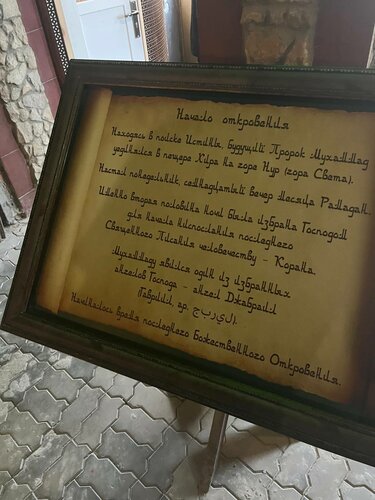 Начало откровения
Находясь в поиске Истины, будущий Пророк Мухаммад
уединялся в пещере Хира на горе Нур (гора Света).
Настал понедельник, семнадцатый вечер месяца Рамадан.
Именно вторая половина ночи была избрана Господом
для начала ниспослания последнего
Священного Писания человечеству - Корана.
Мухаммаду явился один из избранных
ангелов Господа - ангел Джабраил
(Гавриил, ар. جبريل).
Начиналось время последнего Божественного Откровения.